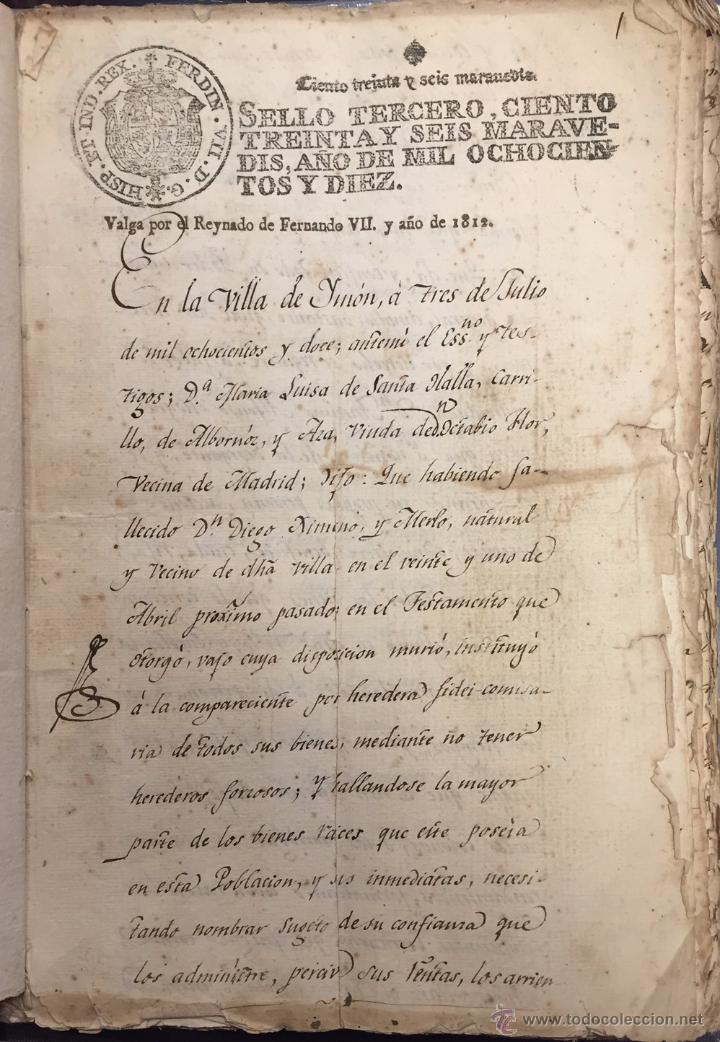 1
Ciento treinta y seis maravedis.
HISP. ET IND. REX. FERDIN. VII. D. G.
SELLO TERCERO, CIENTO
TREINTA Y SEIS MARAVE-
DIS, AÑO DE MIL OCHOCIEN-
TOS Y DIEZ.
Valga por el Reynado de Fernando VII. y año de 1812.
En la Villa de Ymón, á tres de Julio
de mil ochocientos y doce; antemi el Essno y tes-
tigos; Dª Maria Luisa de Santa Olalla, Carri-
llo, de Albornóz, y Aza, Viuda de Dn Octabio Flor,
Vecina de Madrid; Dijo: Que habiendo fa-
llecido Dn Diego Ximeno, y Merlo, natural
y Vecino de dha Villa en el veinte y uno de
Abril proximo pasado; en el Testamento que
otorgó, vajo cuya disposicion murió, instituyó
á la compareciente por heredera fidei-comisa-
ria de todos sus bienes, mediante no tener
herederos forzosos; Y hallandose la mayor
parte de los bienes raices que este poseia
en esta Poblacion, y sus inmediatas, necesi-
tando nombrar Sugeto de su confianza que
los administre, perciva sus Rentas, los arrien
© www.todocoleccion.net